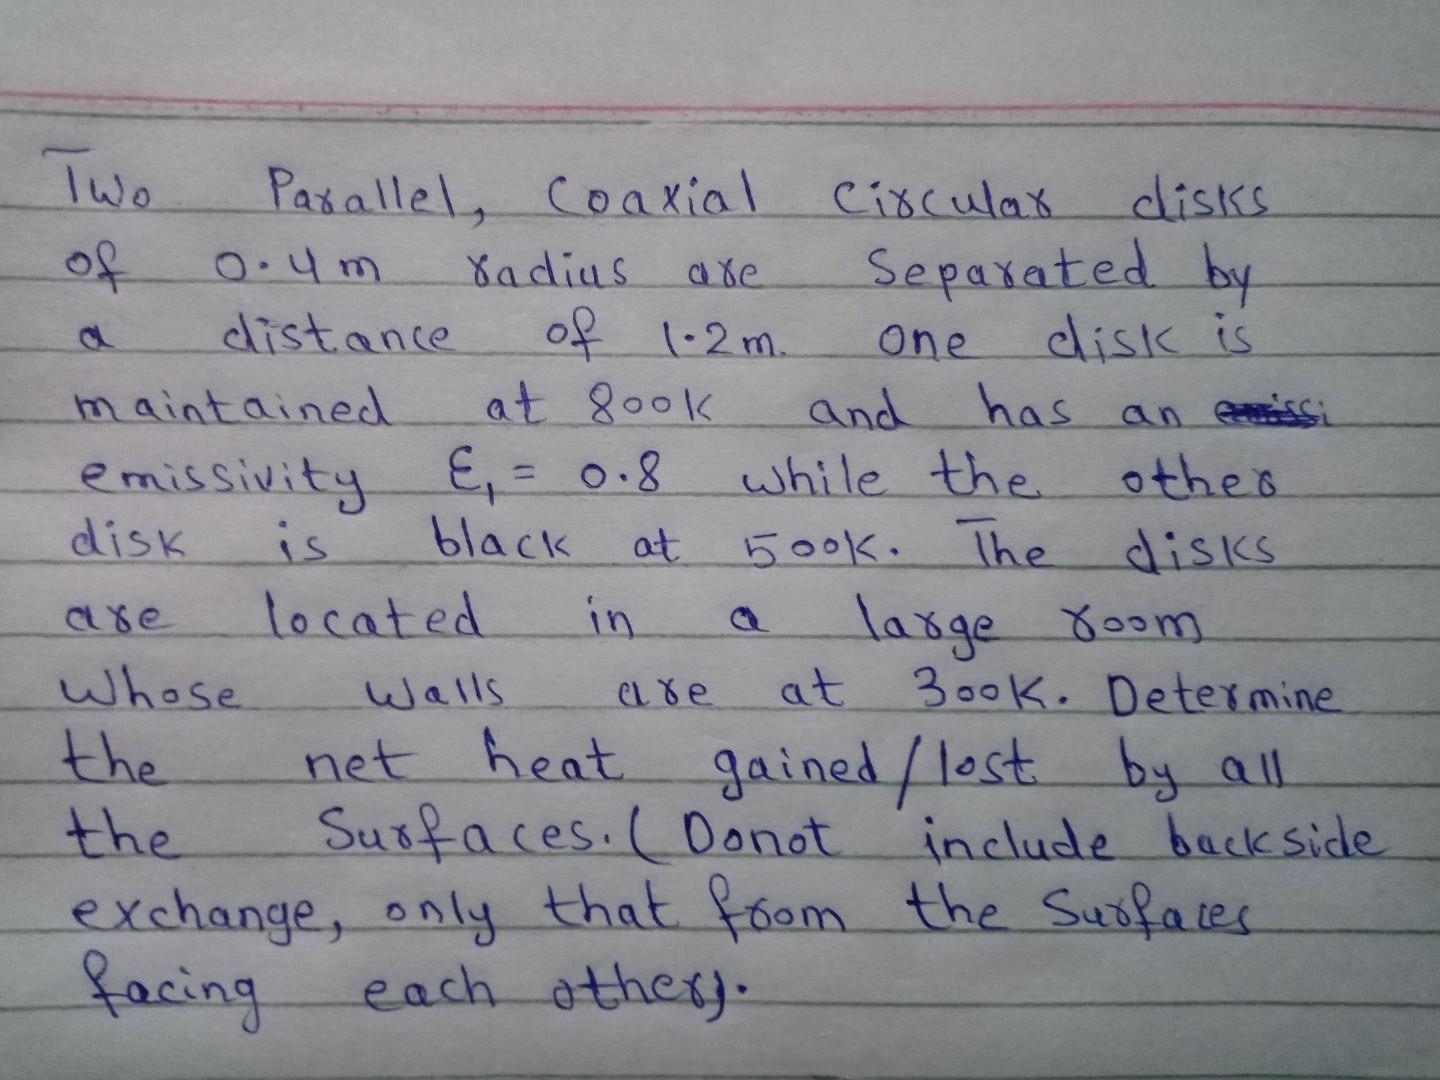 Two Parallel, Coaxial Circular disks
of 0.4m radius are Separated by
a distance of 1.2m. One disk is
maintained at 800K and has an
emissivity ε₁ = 0.8 while the other
disk is black at 500K. The disks
are located in a large room
Whose walls are at 300K. Determine
the net heat gained/lost by all
the Surfaces. (Donot include backside
exchange, only that from the Surfaces
facing each other).